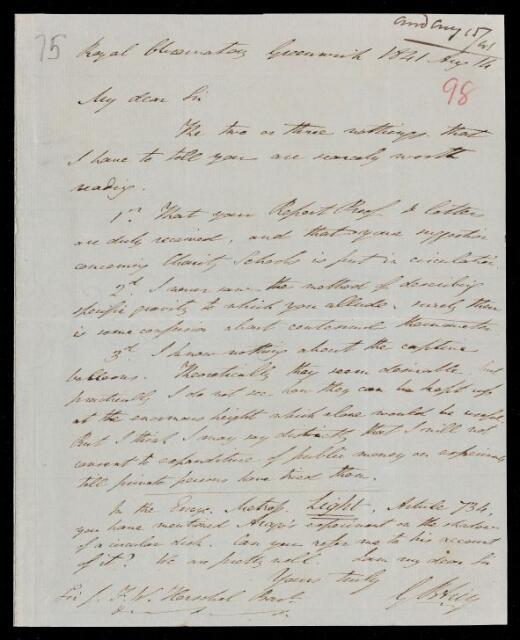 ansd Aug 15/41
75
Royal Observatory Greenwich 1841 Aug 14
98
My dear Sir
The two or three nothings that
I have to tell you are scarcely worth
reading.
1st. That your Report Proof & letter
are duly received, and that your suggestion
concerning Charity Schools is put in circulation.
2d. I never saw the method of describing
specific gravity to which you allude. Surely there
is some confusion about centesimal thermometer
3d. I know nothing about the captive
balloons. Theoretically they seem desirable, but
practically I do not see how they can be kept up
at the enormous height which alone would be useful
But I think I may say distinctly that I will not
consent to expenditure of public money on experiments
till private persons have tried them.
In the Encyc. Metrop. Light, Article 734,
you have mentioned Arago's experiment on the shadow
of a circular disk. Can you refer me to his account
of it? We are pretty well. I am my dear Sir
Yours truly
Sir J. F. W. Herschel Bart.
G B Airy